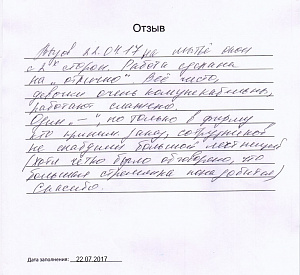 Отзыв
Вызов 22.04.17 на мытьё окон
с 2х сторон. Работа сделана
на "отлично" Всё чисто,
девочки очень коммуникабельны,
работают слаженно.
Один "—", но только в фирму
кто принял заказ, сотрудников
не снабдили большой лестницей
(хотя чётко было обговорено, что
большая стремянка понадобится)
Спасибо.
Дата заполнения: 22.07.2017